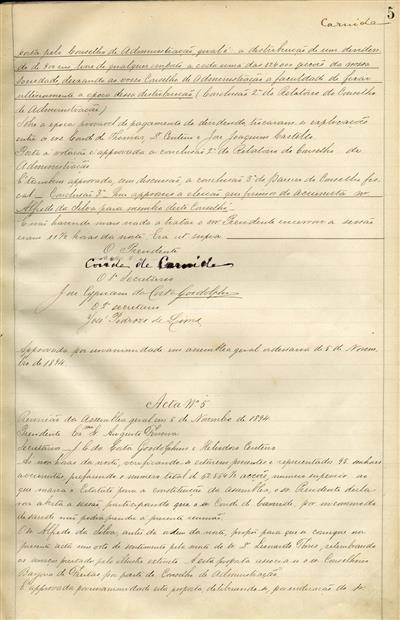 5
Carnide
posta pelo Conselho de Administração qual é a distribuição de um dividen-
do de livre de qualquer imposto a cada uma das acções da nossa
Sociedade deixando ao vosso Conselho de Administração a faculdade de fixar
ulteriormente a epoca dessa distribuição (Conclusão 2ª do Relatorio do Conselho
de Administração)
Sobre a epoca provavel do pagamento do dividendo, trocaram-se explicações
entre o sr. Conde de Thomar, Centeno e José Joaquim Castello.
Posta a votação é approvada a conclusão 2ª do Relatorio do Conselho de
Administração
É tambem approvada, sem discussão, a conclusão 3ª do Parecer do Conselho fis-
cal — Conclusão 3ª Que approveis a eleição que fizemos do accionista sr.
Alfredo da Silva para membro deste Conselho.
E não havendo mais nada a tratar o sr. Presidente encerrou a sessão
eram 11 ½ horas da noite. Era ut supra
O Presidente
Conde de Carnide
O 1º Secretario
José Cypriano da Costa Goodolphim
O 2º secretario
José Pedroso de Lima
Approvada por unanimidade em assembléa geral ordinaria de 5 de Novem-
bro de 1894.
Acta Nº 5
Reunião da Assembléa geral em 5 de Novembro de 1894.
Presidente Exmo Sr Augusto
Secretarios J. C. da Costa Goodolphim e Heliodoro Centeno
Ás nove horas da noite, verificando-se estarem presentes e representados 98 senhores
accionistas, prefazendo o numero total de acções, numero superior ao
que marca o Estatuto para a constituição da assembléa, o sr. Presidente decla-
rou aberta a sessão participando que o sr. Conde de Carnide, por incommodo
de saude não podia presidir a presente reunião.
O sr. Alfredo da Silva, antes da ordem da noite, propoz para que se consigne na
presente acta um voto de sentimento pela morte do sr. Dr Leonardo Torres, relembrando
os serviços prestados pelo illustre extincto. A esta proposta associou-se o sr. Conselheiro
de Freitas por parte do Conselho de Administração.
É approvada por unanimidade esta proposta, deliberando-se, por indicação do sr.